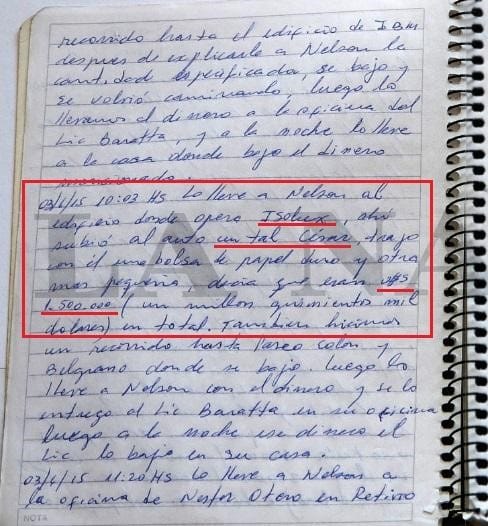 recorrido hasta el edificio de IBM
despues de explicarle a Nelson la
cantidad especificada, se bajo y
se volvió caminando, luego lo
llevamos el dinero a la oficina del
Lic Baratta, y a la noche lo lleve
a la casa donde bajo el dinero
mencionado.
03/6/15 10:03 Hs Lo lleve a Nelson al
edificio donde opera ISOLUX, ahí
subió al auto un tal César, trajo
con él una bolsa de papel duro y otra
mas pequeña, decia que eran U$S
1.500.000 (un millon quinientos mil
dolares) en total. Tambien hicimos
un recorrido hasta Paseo Colon y
Belgrano donde se bajo. Luego lo
lleve a Nelson con el dinero y se lo
entrego al Lic Baratta en su oficina
luego a la noche ese dinero el
Lic lo bajo en su casa.
03/6/15 11:20 Hs Lo lleve a Nelson a
la oficina de Nestor Otero en Retiro
NOTA
LA NA